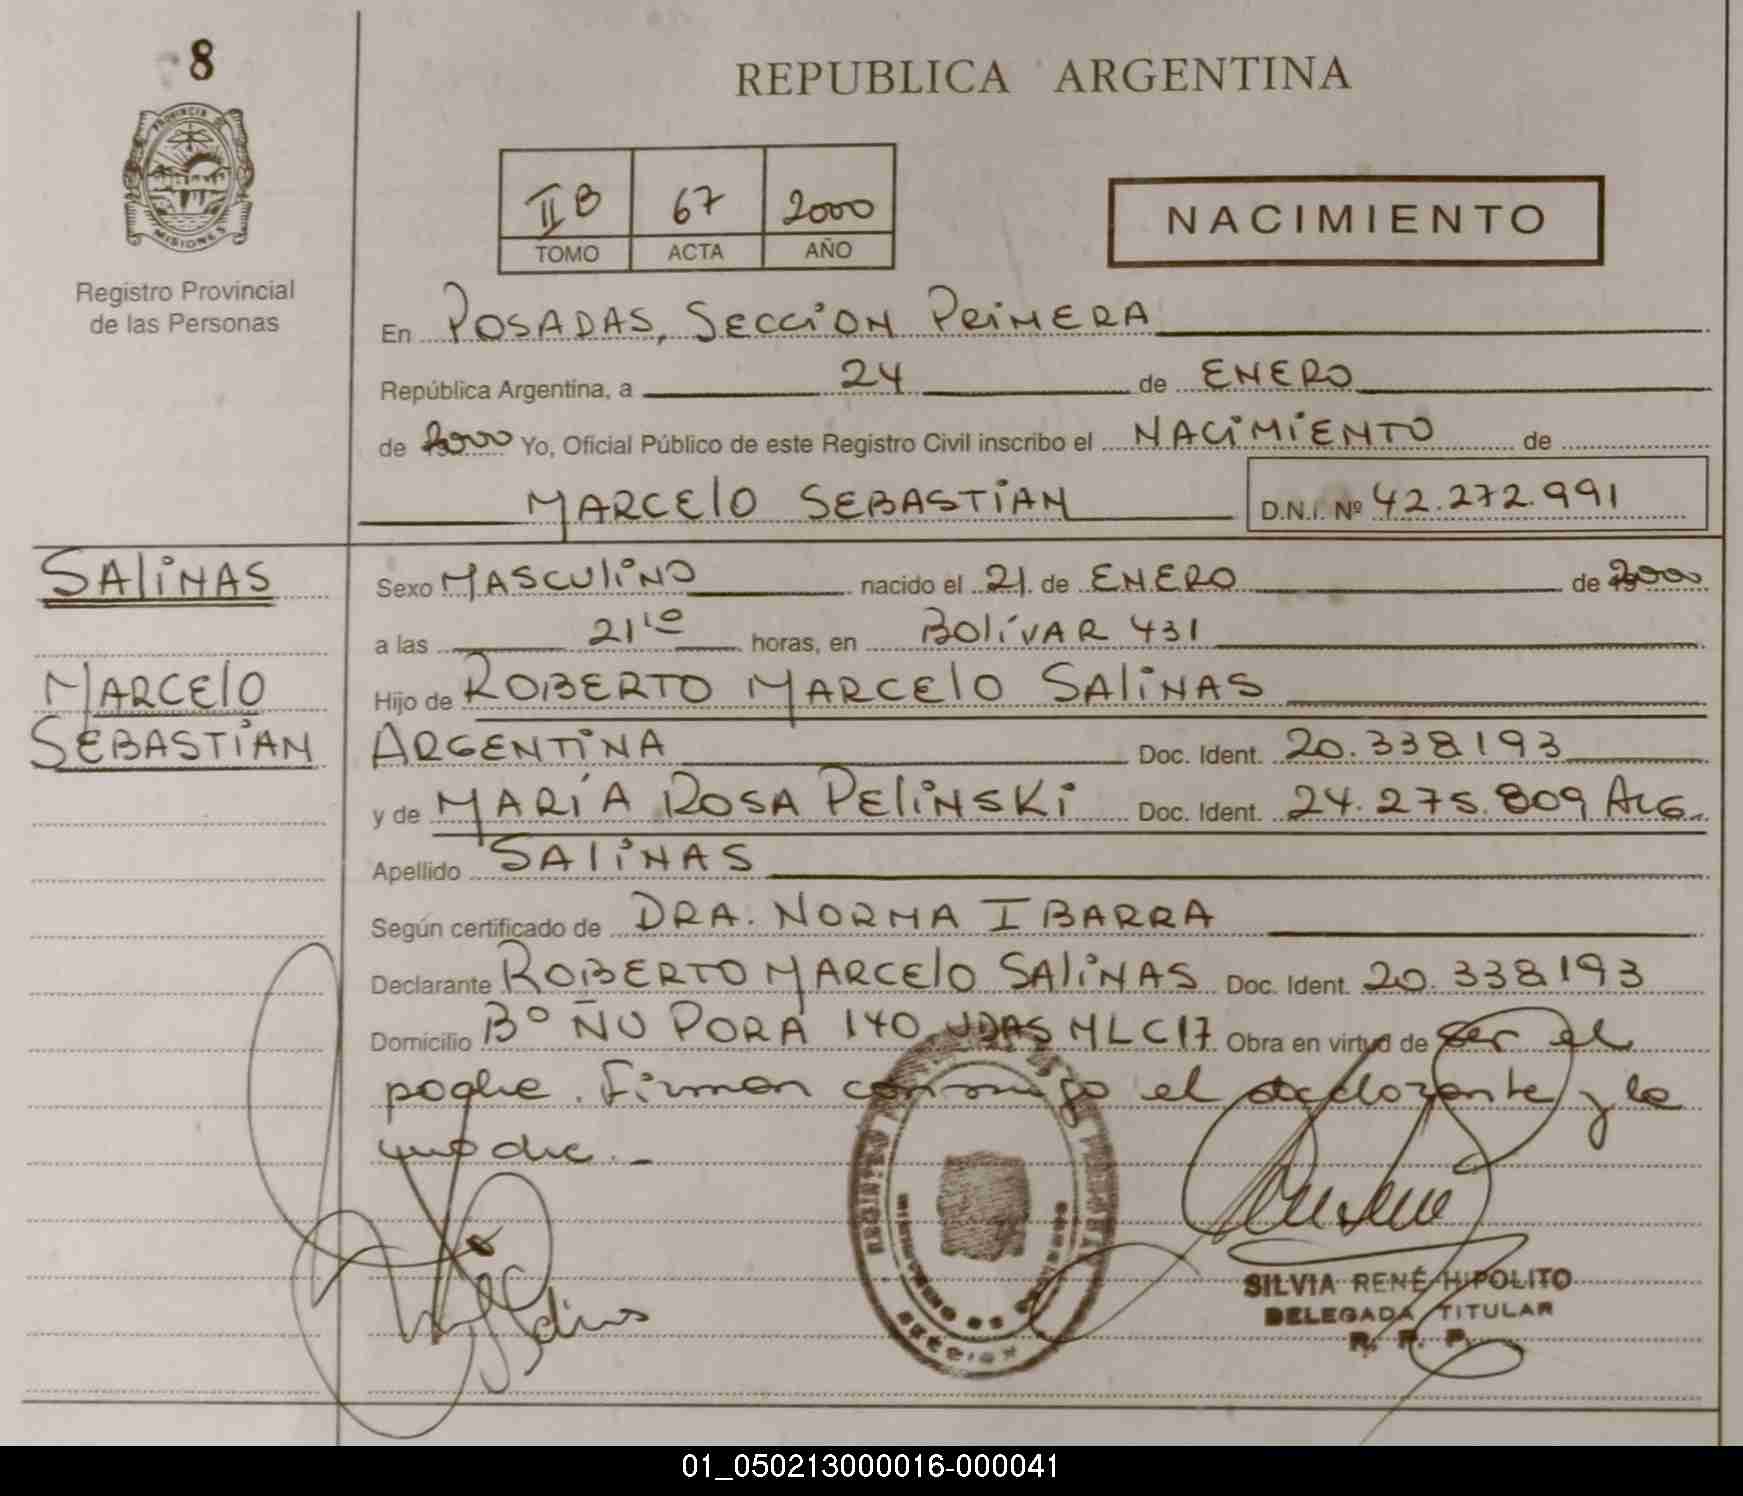 8
REPUBLICA ARGENTINA
PROVINCIA DE
MISIONES
Registro Provincial
de las Personas
II B 67 2000
TOMO ACTA AÑO
NACIMIENTO
En POSADAS, SECCION PRIMERA
República Argentina, a 24 de ENERO
de 2000 Yo, Oficial Público de este Registro Civil inscribo el NACIMIENTO de
MARCELO SEBASTIAN D.N.I. Nº 42.272.991
SALINAS
MARCELO
SEBASTIAN
Sexo MASCULINO nacido el 21 de ENERO de 2000
a las 21 10 horas, en BOLÍVAR 431
Hijo de ROBERTO MARCELO SALINAS
ARGENTINA Doc. Ident. 20.338193
y de MARÍA ROSA PELINSKI Doc. Ident. 24.275.809 ARG.
Apellido SALINAS
Según certificado de DRA. NORMA IBARRA
Declarante ROBERTO MARCELO SALINAS Doc. Ident. 20.338193
Domicilio Bº ÑU PORA 140 VDAS M L C17 Obra en virtud de ser el
padre. Firman conmigo el declarante y la
madre.-
SILVIA RENÉ HIPOLITO
DELEGADA TITULAR
R. P. P.
01_050213000016-000041